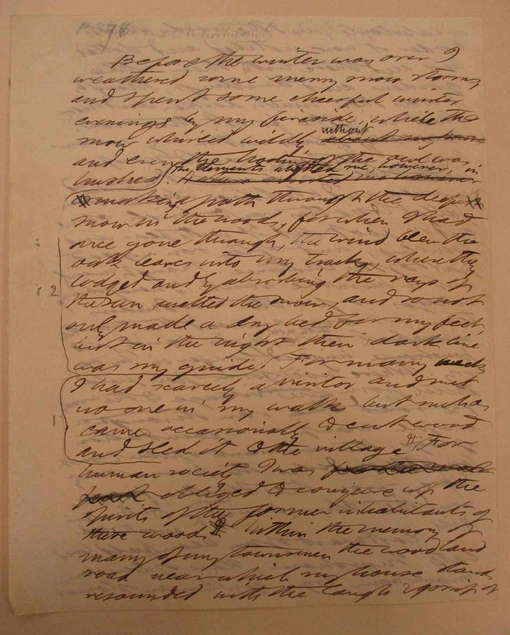 Before the winter was over I
weathered some merry snow storms,
and spent some cheerful winter
evenings by my fireside, while the
snow whirled wildly without
and even the hooting of the owl was
hushed. The elements abetted me, however, in
making a path through the deep
snow in the woods, for when I had
once gone through, the wind blew the
oak leaves into my tracks, where they
lodged and by absorbing the rays of
the sun melted the snow, and so not
only made a dry bed for my feet,
but in the night their dark line
was my guide. For many weeks
2
I had scarcely a visitor and met
no one in my walks but such as
1
came occasionally to cut wood
and sled it to the village. For
human society I was
obliged to conjure up the
spirits of the former inhabitants of
these woods. Within the memory of
many of my townsmen the wood land
road near which my house stands
resounded with the laugh & gossip of